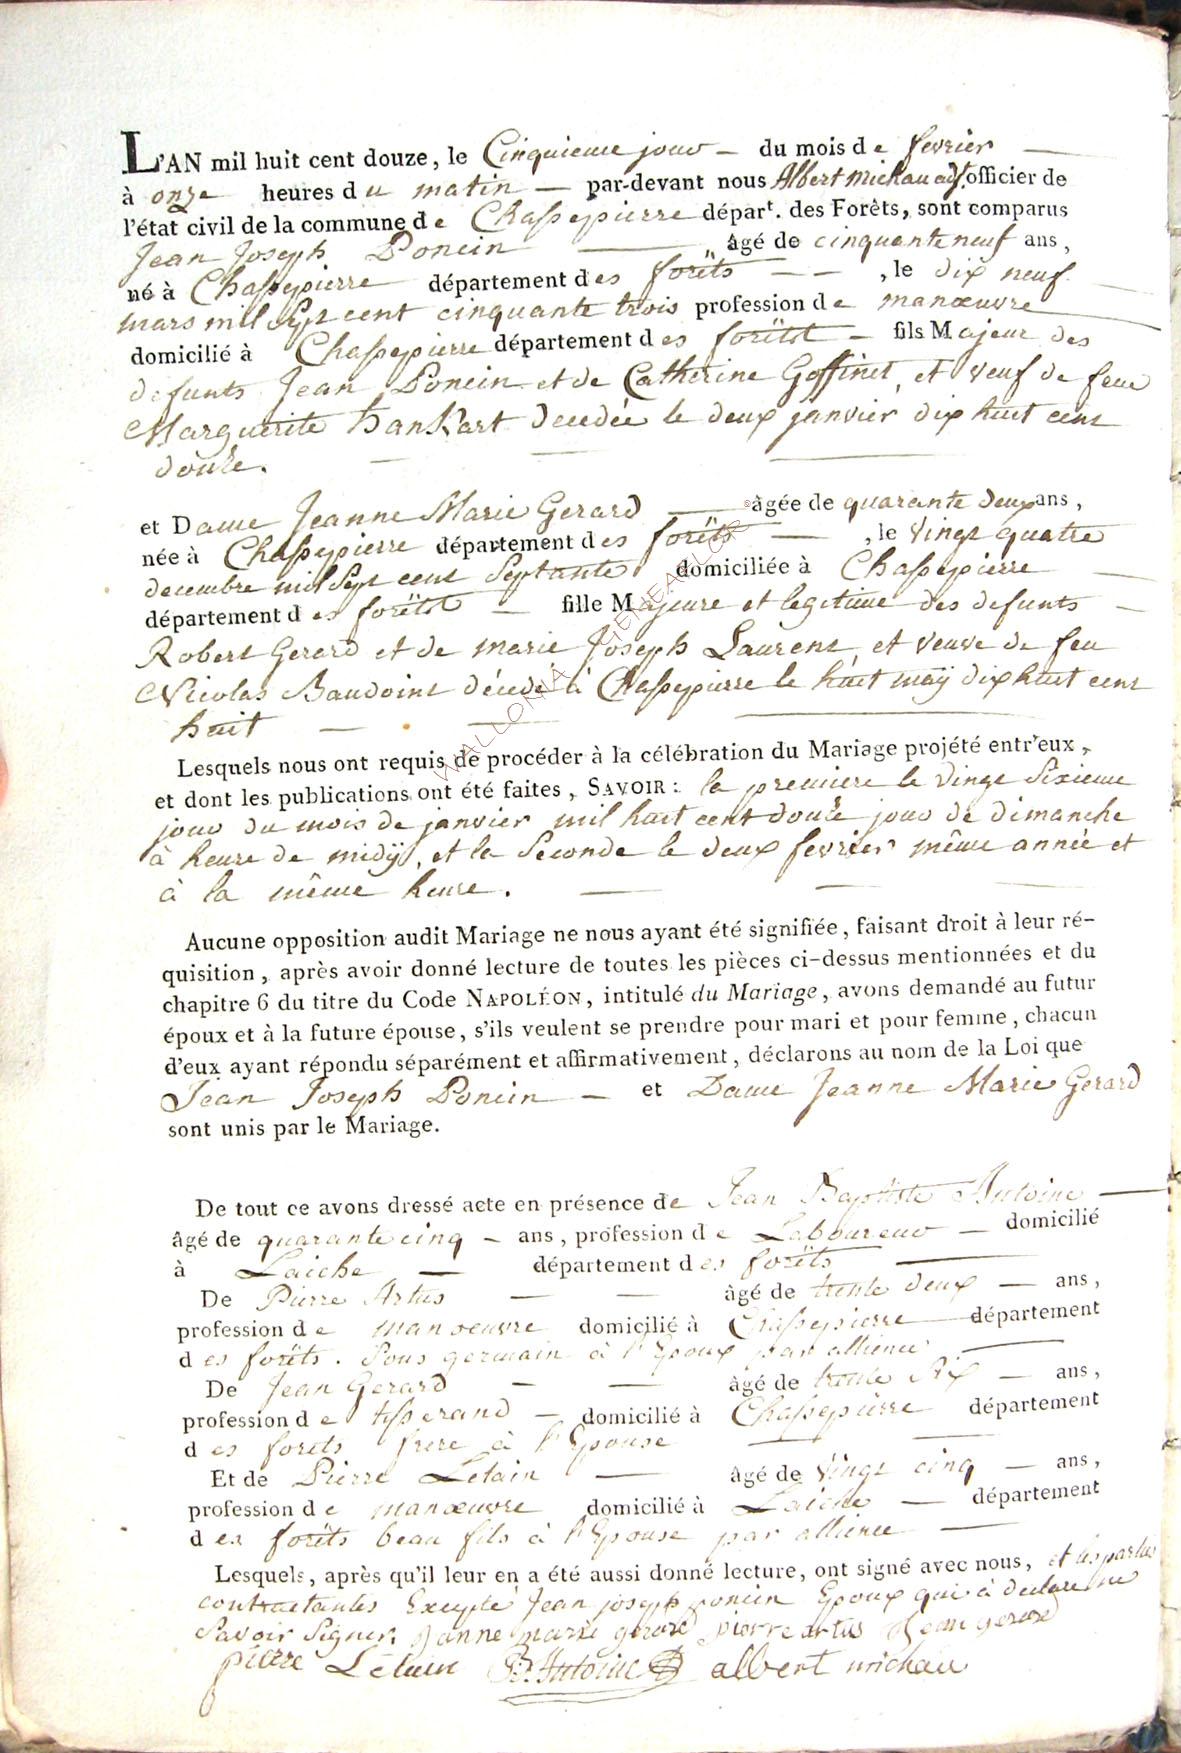 L'AN mil huit cent douze, le Cinquieme jour — du mois de fevrier —
à onze heures du matin — par-devant nous Albert michau adjt officier de
l'état civil de la commune de Chassepierre départ. des Forêts, sont comparus
Jean Joseph Poncin — âgé de cinquante neuf ans,
né à Chassepierre département des forëts — — , le dix neuf
mars mil Sept cent cinquante trois profession de manœuvre
domicilié à Chassepierre département des forëtst — fils Majeur des
defunts Jean Poncin et de Catherine Goffinet, et veuf de feue
Marguerite hanKart decedée le deux janvier dix huit cent
douze.
et Dame Jeanne Marie Gerard — âgée de quarante deux ans,
née à Chassepierre département des forëts — , le vingt quatre
decembre mil Sept cent Septante domiciliée à Chassepierre —
département des forëtst — fille Majeure et legitime des defunts —
Robert Gerard et de marie Joseph Laurent, et veuve de feu
Nicolas Baudoint décedé à Chassepierre le huit maÿ dix huit cent
huit —
Lesquels nous ont requis de procéder à la célébration du Mariage projété entr'eux,
et dont les publications ont été faites, SAVOIR : la premiere le vingt Sixieme
jour du mois de janvier mil huit cent douze jour de dimanche
à heure de midÿ, et la Seconde le deux fevrier même année et
à la même heure.
Aucune opposition audit Mariage ne nous ayant été signifiée, faisant droit à leur ré-
quisition, après avoir donné lecture de toutes les pièces ci-dessus mentionnées et du
chapitre 6 du titre du Code NAPOLÉON, intitulé du Mariage, avons demandé au futur
époux et à la future épouse, s'ils veulent se prendre pour mari et pour femme, chacun
d'eux ayant répondu séparément et affirmativement, déclarons au nom de la Loi que
Jean Joseph Poncin — et Dame Jeanne Marie Gerard
sont unis par le Mariage.
De tout ce avons dressé acte en présence de Jean Baptiste Antoine —
âgé de quarante cinq — ans, profession de Laboureur — domicilié
à Laiche — département des forëts —
De Pierre Artus — — âgé de trente deux — ans,
profession de manœuvre domicilié à Chassepierre département
des forëts. Sous germain à l'Epoux par allience —
De Jean Gerard — — âgé de trente Six — ans,
profession de tisserand — domicilié à Chassepierre département
des forets frere à l'Epouse — —
Et de Pierre Letain — âgé de vingt cinq — ans,
profession de manœuvre domicilié à Laiche — département
des forëts beau fils à l'Epouse par allience —
Lesquels, après qu'il leur en a été aussi donné lecture, ont signé avec nous, et les parties
contractantes Excepté Jean joseph poncin Epoux qui à declaré ne
Savoir Signer. Janne marie gerard pierre artus Jean gerard
pierre Letain JB. Antoine albert michau
© WALLONIA GENEAFLOR